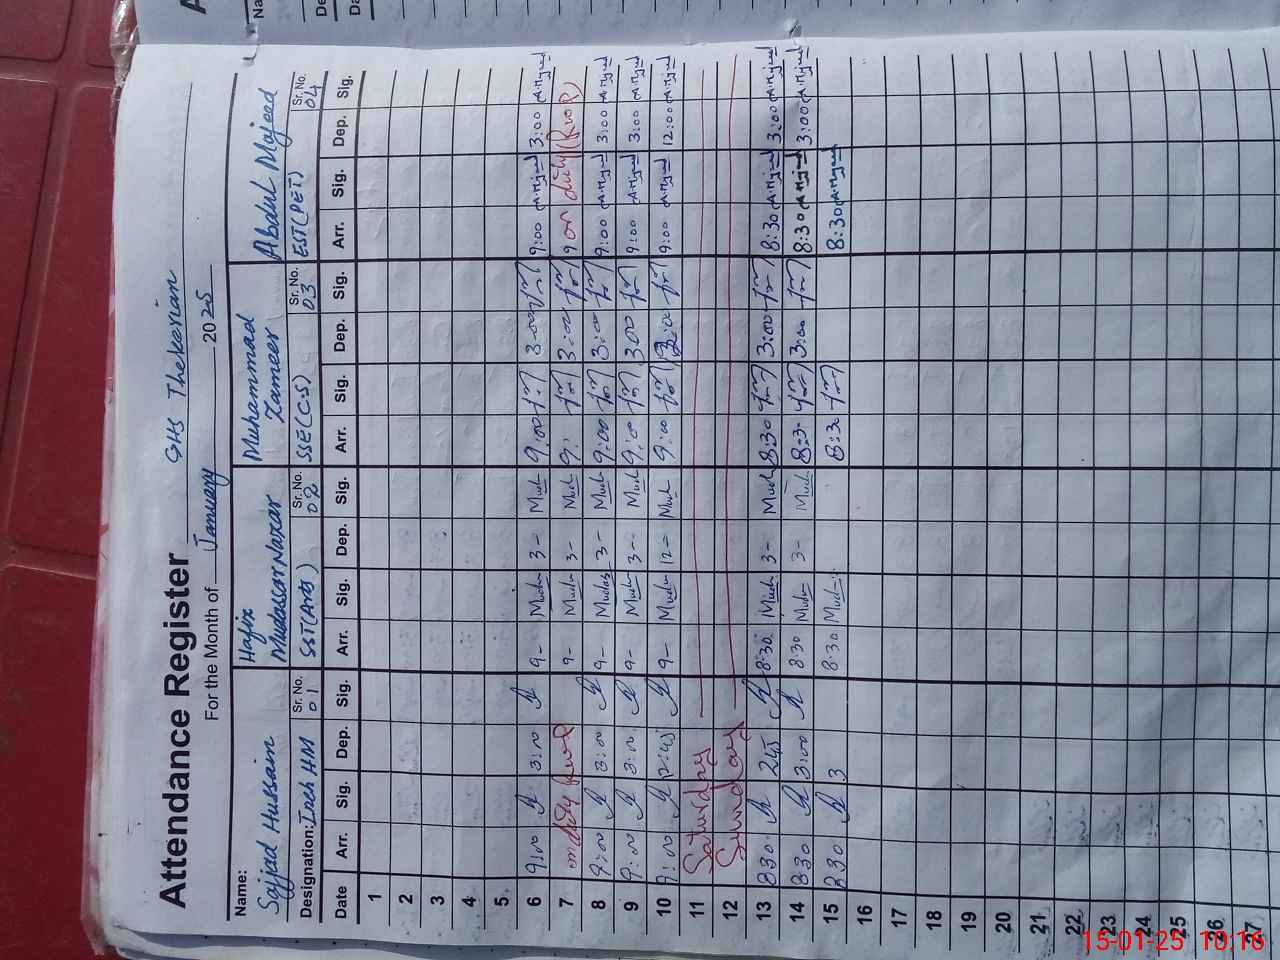 Attendance Register GHS Thekerian
For the Month of January 2025
Name: Sajjad Hussain Hafiz Mudassar Nazar Muhammad Zameer Abdul Majeed
Designation: Inch HM Sr. No. 01 SST(Arts) Sr. No. 02 SSE(C.S) Sr. No. 03 EST(PET) Sr. No. 04
Date Arr. Sig. Dep. Sig. Arr. Sig. Dep. Sig. Arr. Sig. Dep. Sig. Arr. Sig. Dep. Sig.
1
2
3
4
5
6 9:00 3:00 9- 3- 9:00 3:00 9:00 A.Majeed 3:00 A.Majeed
7 on duty 9- 3- 9: 3:00 9 on duty
8 9:00 3:00 9- 3- 9:00 3:00 9:00 A.Majeed 3:00 A.Majeed
9 9:00 3:00 9- 3- 9:00 3:00 9:00 A.Majeed 3:00 A.Majeed
10 9:00 9- 12- 9:00 9:00 A.Majeed 12:00 A.Majeed
11 Saturday
12 Sunday
13 8:30 245 8:30 3- 8:30 3:00 8:30 A.Majeed 3:00 A.Majeed
14 8:30 3:00 8:30 3- 8:30 3:00 8:30 A.Majeed 3:00 A.Majeed
15 8:30 3 8:30 8:30 8:30 A.Majeed
16
17
18
19
20
21
22
23
24
25
26
27
15-01-25 10:16